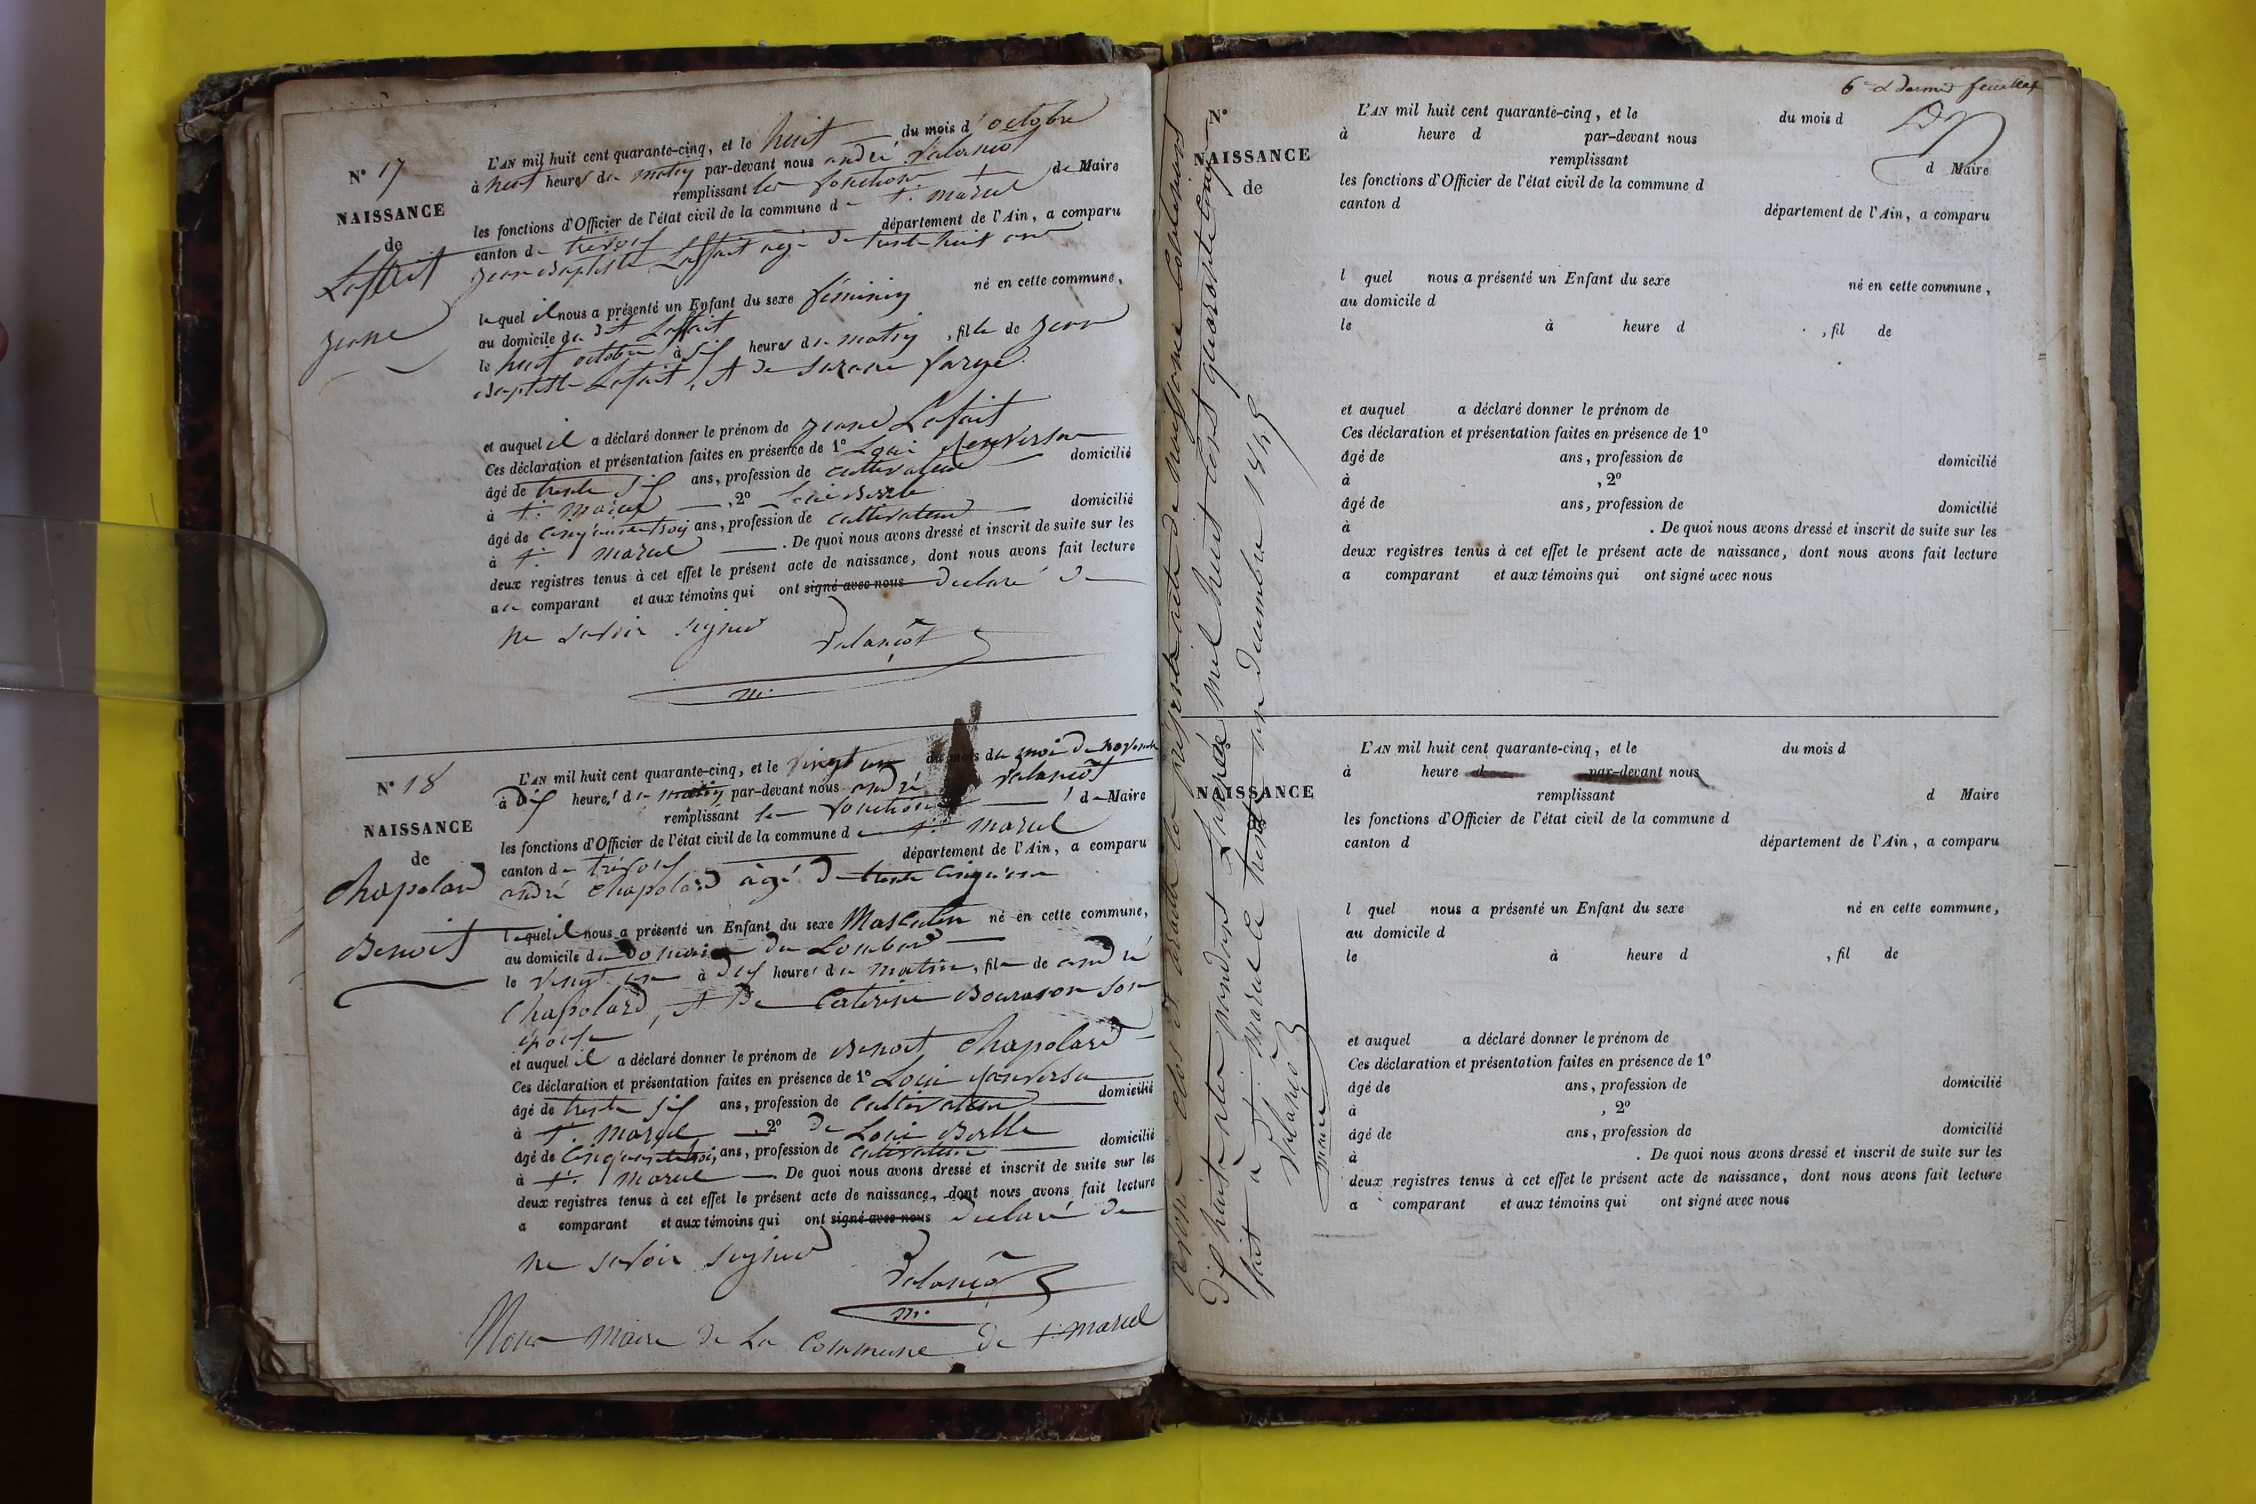 N° 17
NAISSANCE
de
Laffait
Jeane
L'AN mil huit cent quarante-cinq, et le huit du mois d'octobre
à huit heures du matin par-devant nous andré Valançot
remplissant les fonction de Maire
les fonctions d'Officier de l'état civil de la commune de St. marcel
canton de trévoux département de l'Ain, a comparu
jean Baptiste Laffait agé de trente huit ans
lequel il nous a présenté un Enfant du sexe féminin né en cette commune,
au domicile du dt Laffait
le huit octobre à six heures du matin, fille de jean
Baptiste Lafait, et de Suzane farge
et auquel il a déclaré donner le prénom de jeane Lafait
Ces déclaration et présentation faites en présence de 1° Loui
âgé de trente six ans, profession de cultivateur domicilié
à St. marcel, 2° Loui
âgé de cinquante trois ans, profession de cultivateur domicilié
à St. marcel. De quoi nous avons dressé et inscrit de suite sur les
deux registres tenus à cet effet le présent acte de naissance, dont nous avons fait lecture
au comparant et aux témoins qui ont signé avec nous declaré de
ne savoir signer
Valançot
m.
N° 18
NAISSANCE
de
Chapolard
Benoit
L'AN mil huit cent quarante-cinq, et le vingt un du mois du moi de novembre
à dix heures du matin par-devant nous andré Valançot
remplissant les fonction de Maire
les fonctions d'Officier de l'état civil de la commune de St. marcel
canton de trévoux département de l'Ain, a comparu
andré Chapolard agé de trente cinq ans
lequel il nous a présenté un Enfant du sexe Masculin né en cette commune,
au domicile du domaine du Lombard
le vingt un à dix heures du matin, fils de andré
Chapolard, et de Caterine Bourason son
épouse
et auquel il a déclaré donner le prénom de Benoit Chapolard
Ces déclaration et présentation faites en présence de 1° Loui
âgé de trente six ans, profession de cultivateur domicilié
à St. marcel, 2° de Loui
âgé de cinquante trois ans, profession de cultivateur domicilié
à St. marcel. De quoi nous avons dressé et inscrit de suite sur les
deux registres tenus à cet effet le présent acte de naissance, dont nous avons fait lecture
a comparant et aux témoins qui ont signé avec nous declaré de
ne savoir signer
Valançot
m.
Nous Maire de La Commune de St. marcel
avons clos et arrêté le présent acte de naissance contenant
dix huit actes pendant L'année mil huit cent quarante cinq
fait à St. marcel le trent un decembre 1845
Valançot
maire
6e et dernier feuillet
N°
NAISSANCE
de
L'AN mil huit cent quarante-cinq, et le du mois d
à heure d par-devant nous
remplissant d Maire
les fonctions d'Officier de l'état civil de la commune d
canton d département de l'Ain, a comparu
l quel nous a présenté un Enfant du sexe né en cette commune,
au domicile d
le à heure d , fil de
et auquel a déclaré donner le prénom de
Ces déclaration et présentation faites en présence de 1°
âgé de ans, profession de domicilié
à , 2°
âgé de ans, profession de domicilié
à . De quoi nous avons dressé et inscrit de suite sur les
deux registres tenus à cet effet le présent acte de naissance, dont nous avons fait lecture
a comparant et aux témoins qui ont signé avec nous
NAISSANCE
L'AN mil huit cent quarante-cinq, et le du mois d
à heure d par-devant nous
remplissant d Maire
les fonctions d'Officier de l'état civil de la commune d
canton d département de l'Ain, a comparu
l quel nous a présenté un Enfant du sexe né en cette commune,
au domicile d
le à heure d , fil de
et auquel a déclaré donner le prénom de
Ces déclaration et présentation faites en présence de 1°
âgé de ans, profession de domicilié
à , 2°
âgé de ans, profession de domicilié
à . De quoi nous avons dressé et inscrit de suite sur les
deux registres tenus à cet effet le présent acte de naissance, dont nous avons fait lecture
a comparant et aux témoins qui ont signé avec nous